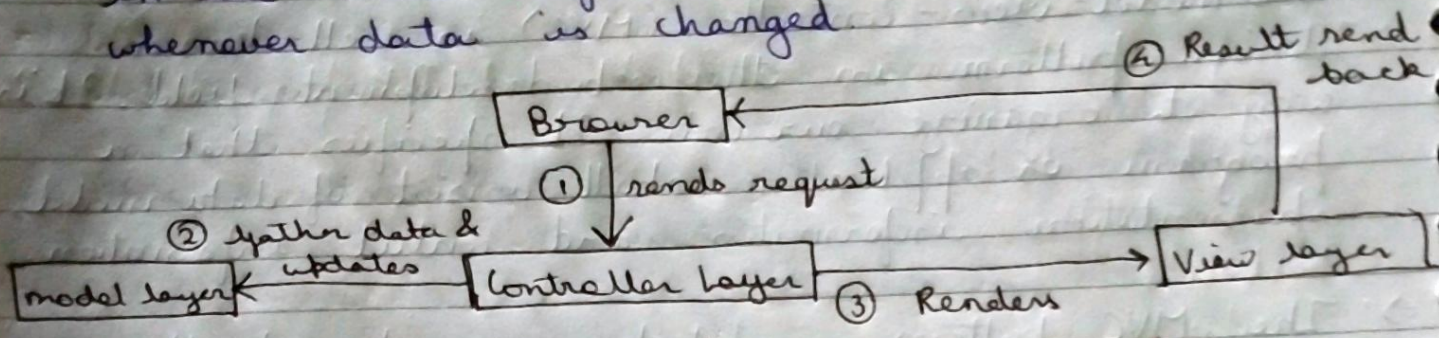 whenever data is changed
④ Result send
back
Browser
① sends request
② gather data &
updates
model layer
Controller Layer
③ Renders
View layer